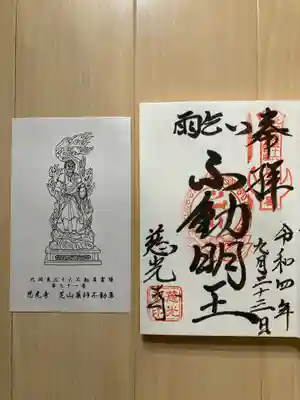 奉拝
雨乞い
不動明王
慈光寺
令和四年
九月二十三日
慈光寺
九州三十六不動尊霊場
慈光寺 芝山薬師不動尊